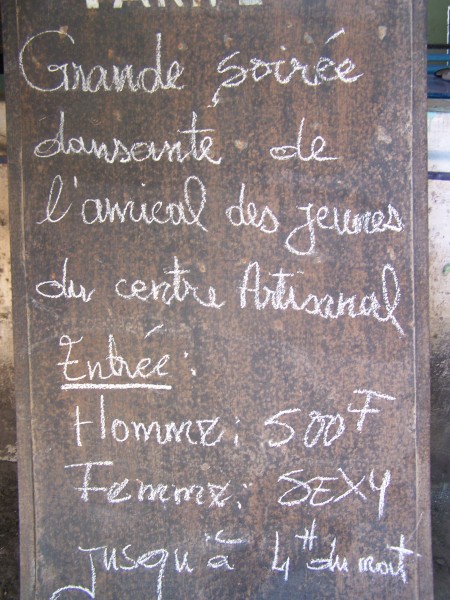 TARIF
Grande soirée
dansante de
l'amical des jeunes
du centre Artisanal
Entrée :
Homme : 500F
Femme : SEXY
jusqu'à 4H du mat